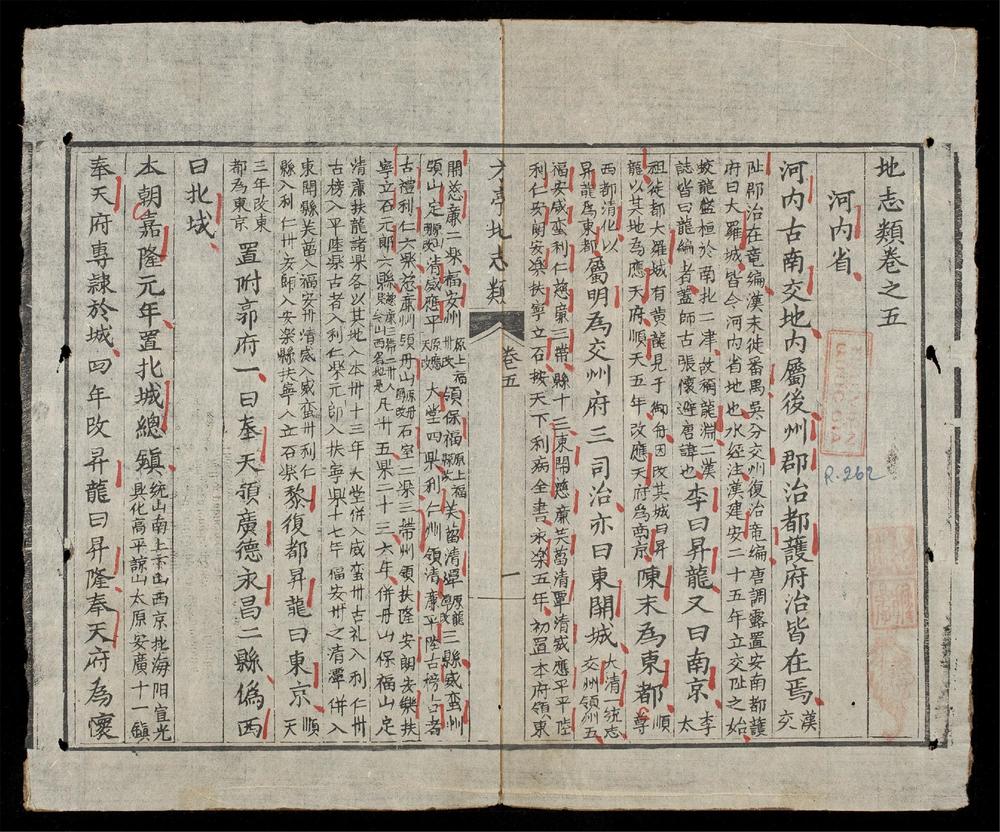 地志類卷之五
河内省
河内古南交地内屬後州郡治都護府治皆在焉漢交
趾郡治在竜編漢末徙番禺吳分交州復治竜編唐調露置安南都護
府曰大羅城皆今河内省地也水經注漢建安二十五年立交趾之始
蛟龍盤桓於南北二津故稱龍淵二漢
誌皆曰龍編者蓋師古張懷避唐諱也李曰昇龍又曰南京李太
祖徙都大羅城有黄龍見于御舟因改其城曰昇
龍以其地為應天府順天五年改應天府為南京陳末為東都順尊
西都清化以
昇龍為東都屬明為交州府三司治亦曰東關城大清統志交州領州五
福安威蛮利仁慈廉三帶縣十三東關慈廉芙菑清潭清威應平平陸
利仁安朗安楽扶寧立石按天下利病全書永楽五年初置本府領東
方亭地志類
卷五
一
關慈廉二縣福安州原上福州改領保福原上福縣改芙菑清潭原龍潭改三縣威蛮州
領山定清威應平大堂四縣利仁州領清廉平陸古榜古者
古禮利仁六縣慈廉州領丹山石室二縣三帶州領扶隆安朗安樂扶
寧立石元郎六縣凡廿五縣二十三六年併丹山保福山定
清廉扶龍諸縣各以其地入本州十三年大堂併入威蛮州古礼入利仁州
古榜入平陸縣古者入利仁縣元郎入扶寧縣十七年福安州之清潭併入
東關縣芙菑入福安州清威入威蛮州利仁
縣入利仁州安郎入安楽縣扶寧入立石縣黎復都昇龍曰東京順天
三年改東
都為東京置附郭府一曰奉天領廣德永昌二縣偽西
曰北城
本朝嘉隆元年置北城總鎮統山南上下山西京北海陽宣光
興化高平諒山太原安廣十一鎮
奉天府專隸於城四年改昇龍曰昇隆奉天府為懷
R.262